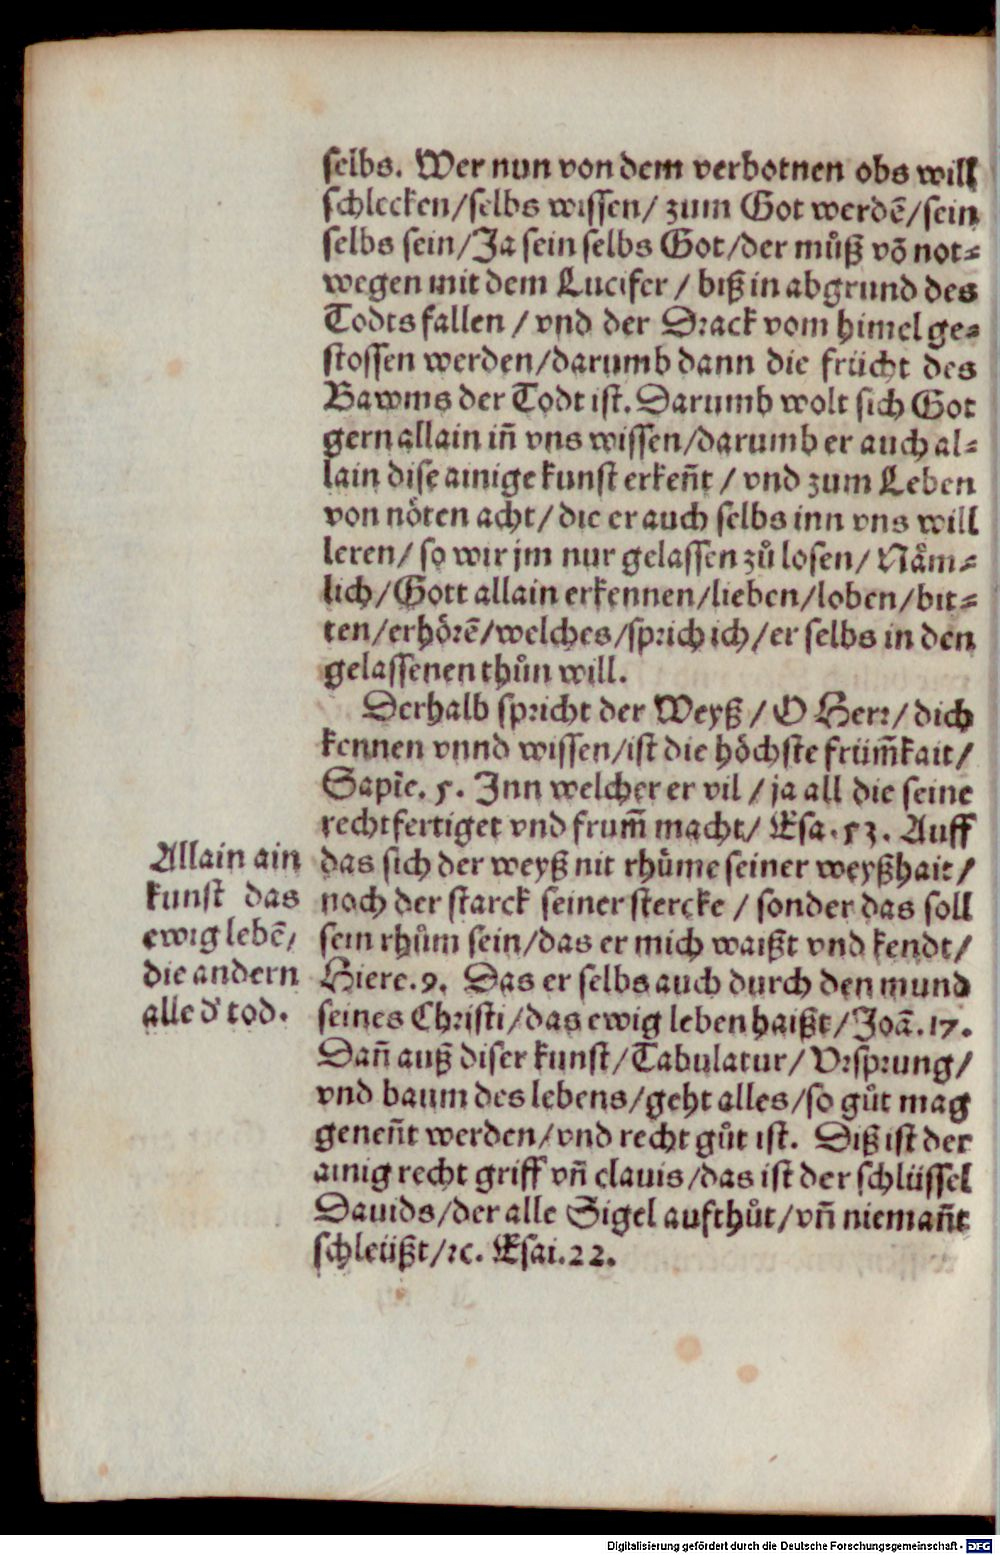 selbs. Wer nun von dem verbotnen obs will
schlecken/selbs wissen/ zum Got werdẽ/sein
selbs sein/Ja sein selbs Got/der můß võ not⸗
wegen mit dem Lucifer / biß in abgrund des
Todts fallen / vnd der Drack vom himel ge⸗
stossen werden/darumb dann die frücht des
Bawms der Todt ist. Darumb wolt sich Got
gern allain iñ vns wissen/darumb er auch al⸗
lain dise ainige kunst erkeñt / vnd zum Leben
von nöten acht/ die er auch selbs inn vns will
leren/ so wir jm nur gelassen zů losen/ Näm⸗
lich/Gott allain erkennen/lieben/loben/bit⸗
ten/erhörẽ/welches/sprich ich/er selbs in den
gelassenen thůn will.
Derhalb spricht der Weyß / O Herr/ dich
kennen vnnd wissen/ist die höchste früm̃kait/
Sapĩe. 5. Inn welcher er vil / ja all die seine
rechtfertiget vnd frum̃ macht/ Esa. 53. Auff
das sich der weyß nit rhůme seiner weyßhait/
noch der starck seiner stercke / sonder das soll
sein rhům sein/das er mich waißt vnd kendt/
Hiere. 9. Das er selbs auch durch den mund
seines Christi/das ewig leben haißt/Joã. 17.
Dañ auß diser kunst/Tabulatur/ Vrsprung/
vnd baum des lebens/geht alles/so gůt mag
geneñt werden/vnd recht gůt ist. Diß ist der
ainig recht griff vñ clauis/das ist der schlüssel
Dauids/der alle Sigel aufthůt/vñ niemañt
schleüßt/ꝛc. Esai. 22.
Allain ain
kunst das
ewig lebẽ/
die andern
alle d' tod.
Digitalisierung gefördert durch die Deutsche Forschungsgemeinschaft - DFG